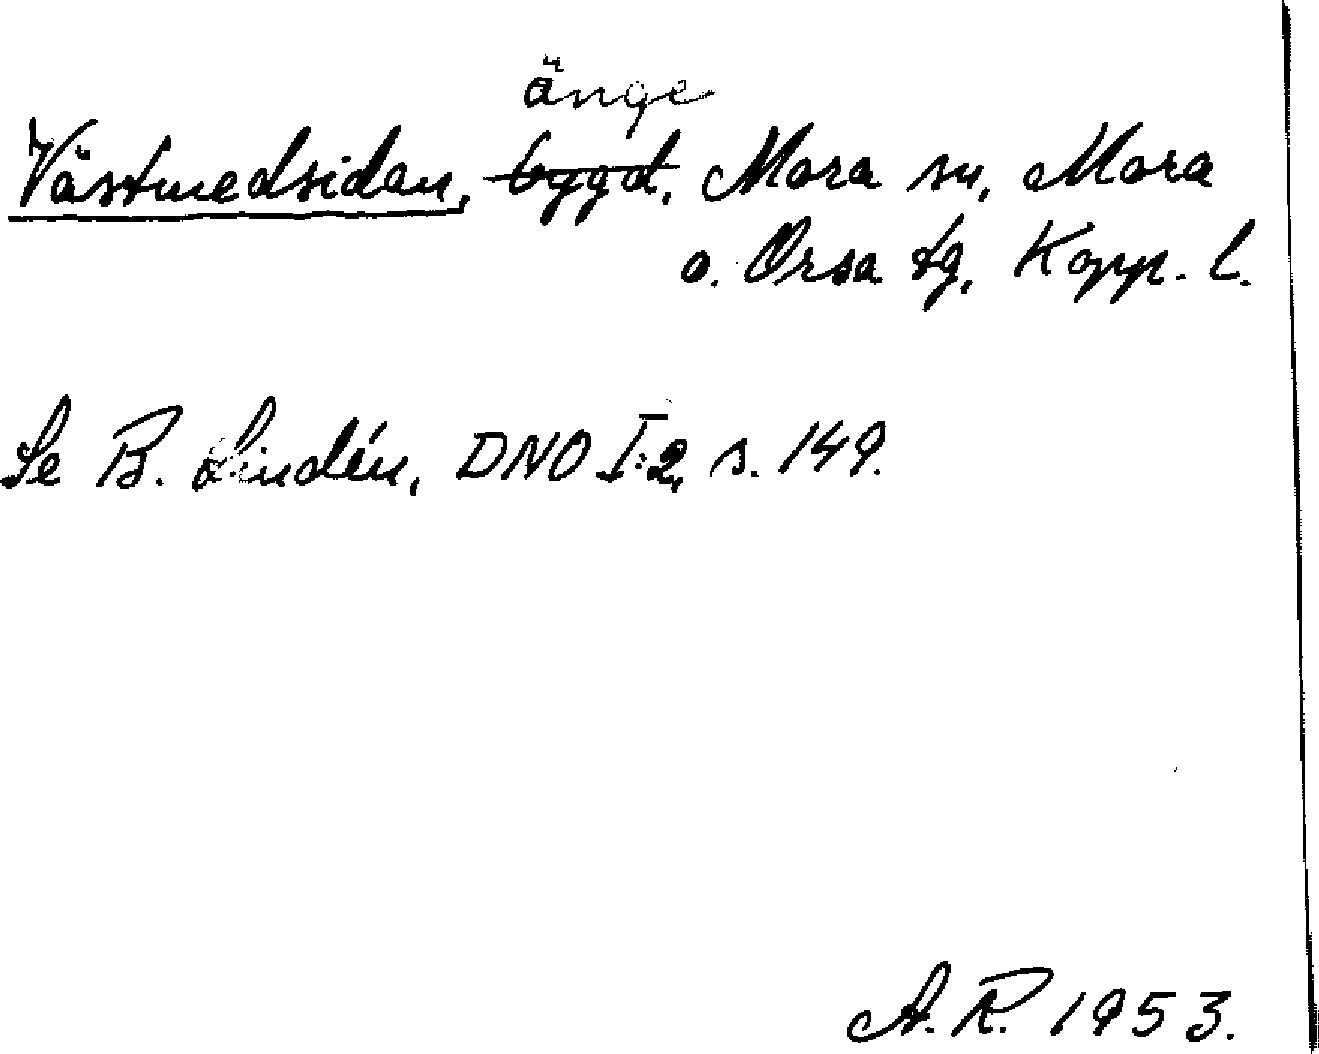 änge
Västmedsidan, bygd, Mora sn, Mora
o. Orsa tg, Kopp. l.
Se B. Lindén, DNO I:2, s. 149.
A.R. 1953.